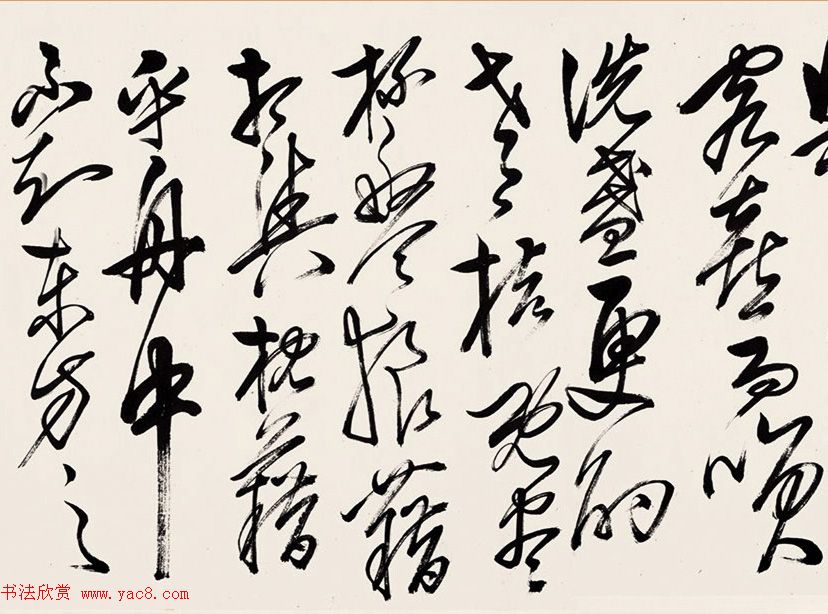 客喜而咲
洗盞更酌
肴核既盡
杯盤狼藉
相與枕藉
乎舟中
不知東方之
书法欣赏 www.yac8.com